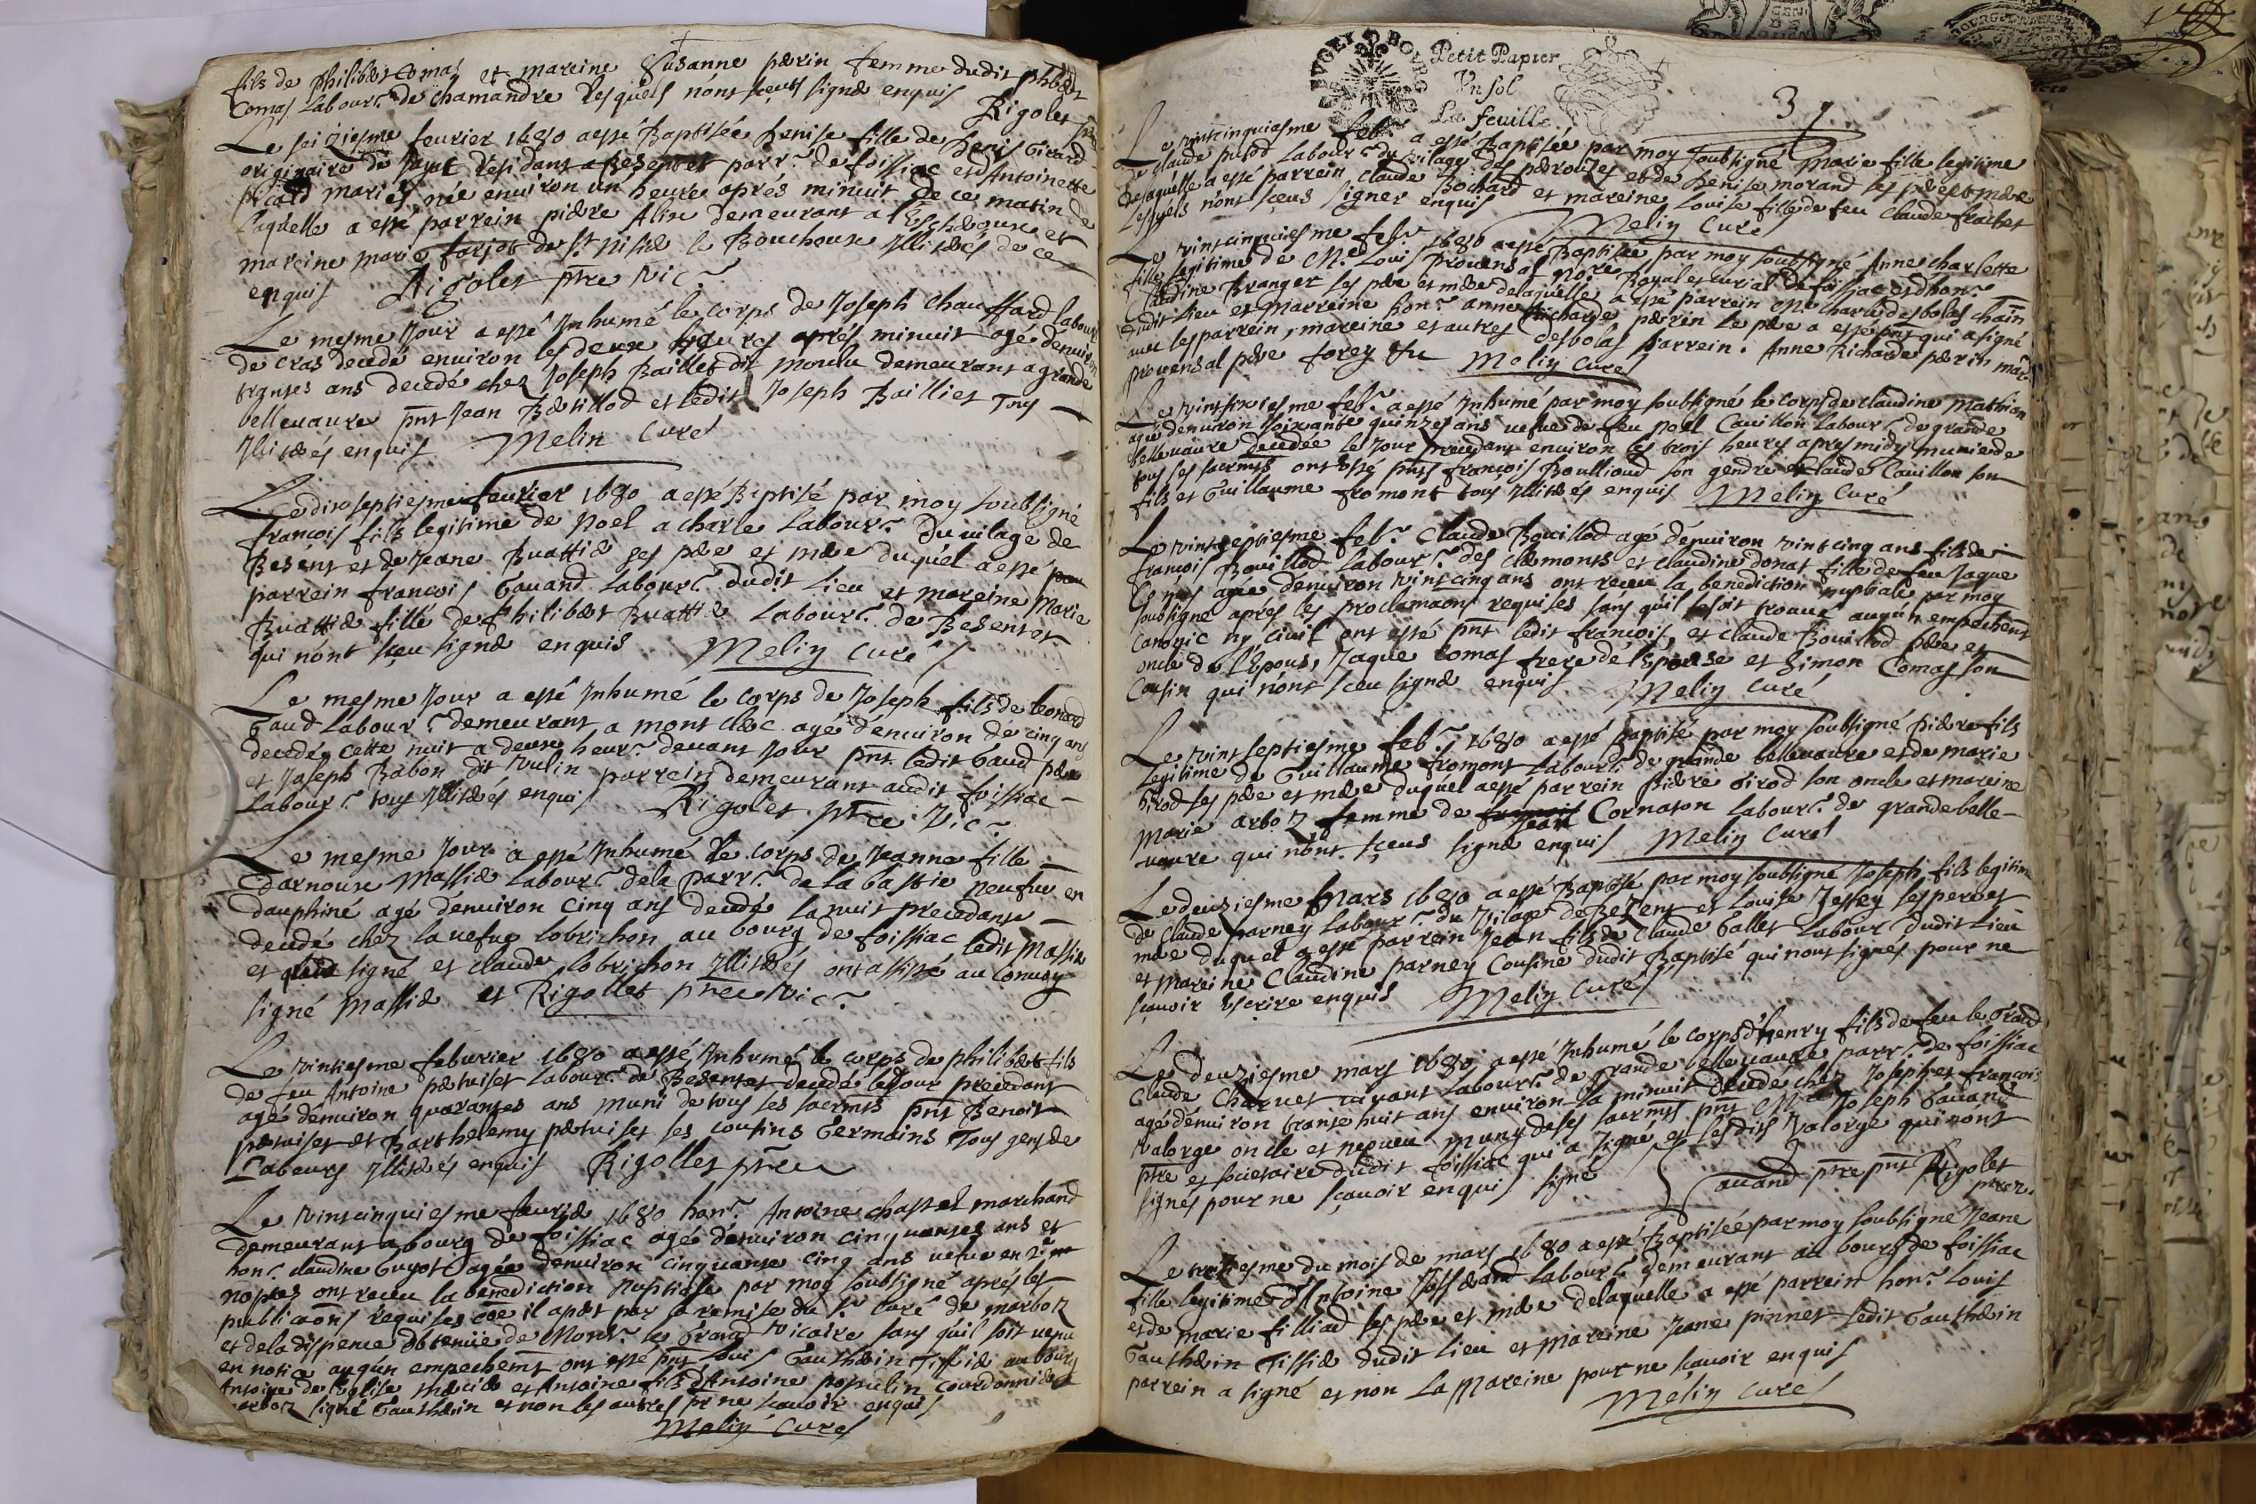 fils de philibert Comas et mareine Susanne perin femme dudit philibert
Comas labour.r de chamandre lesquels n'ont sceus signer enquis
Rigolet
Le seiziesme feurier 1680 a esté Baptisée Denise fille de Denis Girard
originaire de residant a Besentet parr.e de foissiac et d'Antoinette
picard mariés née enuiron un heure aprés minuit de ce matin de
laquelle a esté parrein piere Alin demeurant a et
mareine marie forjot de st nisié le Bouchoux Illiterés de ce
enquis Rigolet ptre vic.e
Le mesme Jour a esté Inhumé le corps de Joseph chauffard labour
de cras decedé enuiron les deux heures aprés minuit agé denuiron
trentes ans decedé chez Joseph Baillet dit moulu demeurant a grande
belleuaure pnt Jean Bertillod et ledit Joseph Baillet Tous
Illiterés enquis Melin Curé
Le dixseptiesme feurier 1680 a esté Baptisé par moy soubsigné
francois fils legitime de Noel acharle labour.r du uilage de
Besent et de Jeane Buattier ses pere et mere duquel a esté
parrein francois Gauand labour.r dudit lieu et mareine Marie
Buattier fille de philibert Buattier labour.r de Besentet
qui n'ont sceu signer enquis Melin Curé
Le mesme Jour a esté Inhumé le corps de Joseph fils de leonard
Gaud labour.r demeurant a mont clerc agé d'enuiron de cinq ans
decedé cette nuit a deux heur.s deuant Jour pnt ledit Gaud pere
et Joseph Babon dit Vulin parrein demeurant audit foissiac
labour.r tous Illiterés enquis Rigolet ptre vic.e
Le mesme Jour a esté Inhumé le corps de Jeanne fille
d'arnoux Massier labour.r dela parr.e de la bastie neufue en
dauphiné agé denuiron cinq ans decedé la nuit precedante
decedé chez la uefue lobrichon au bourg de foissiac ledit Massier
et signé et claude lobrichon Illiterés ont assisté au conuoy
signé Massier et Rigollet ptre vic.e
Le vintiesme feburier 1680 a esté Inhumé le corps de philibert fils
de feu Antoine pertuiset labour.r de Besentet decedé le Jour precedant
agé denuiron quarantes ans muni de tous ses sacrmts pnt Benoit
pertuiset et Barthelemy pertuiset ses cousins Germains Tous gens de
Labeurs Illiterés enquis Rigollet ptre
Le vintcinquiesme feurier 1680 hon.e Antoine chastel marchand
demeurant a bourg de foissiac agé denuiron cinquantes ans et
hon.e claudine Guyot agée denuiron cinquante cinq ans uefue en
nopces ont receu la benediction nuptiale par moy soubsigné aprés les
publicaons requises cõe il apert par la remise du Sr Curé de marboz
et dela dispence obtenüe de Mons.r le Grand Vicaire sans quil soit uenu
en notice aucun empechemt ont esté pnt louis Gautherin Tissier au bourg
Antoine de l'Eglise mercier et Antoine fils d'Antoine populin Courdonnier
marboz signé Gautherin et non les autres pr ne scauoir enquis
Melin Curé
Petit Papier
Vn sol
La feuille
37
Le vintcinquiesme feb.r a esté Baptisée par moy soubsigné Marie fille legitime
de claude putod labour.r du vilage des perouzes et de Denise morand ses pere et mere
de laquelle a esté parrein claude Bochard et mareine louise fille de feu claude frachet
lesquels n'ont sceus signer enquis Melin Curé
Le vintcinquiesme feb.r 1680 a esté Baptisée par moy soubsigné Anne charlotte
fille legitime de M.e loui prouensal nore Royal et curial de foissiac et d'hon.e
claudine Branger ses pere et mere de laquelle a esté parrein M.e charle desbolas chain
dudit lieu et Marreine hon.e anne Richarde perin le pere a esté pnt qui a signé
auec les parrein, mareine et autres desbolas parrein. Anne Richarde perin mar.e
prouensal pere forey Melin Curé
Le vintsixiesme feb.r a esté Inhumé par moy soubsigné le corps de claudine Mathian
agé denuiron soixante quinzes ans uefue de feu noel Cauillon labour.r de grande
belleuaure decedée le Jour precedant enuiron les trois heures apres midy munie de
tous ses sacrmts ont esté pnts françois Boullioud son gendre claude Cauillon son
fils et Guillaume fromont tous Illiterés enquis Melin Curé
Le vintseptiesme feb.r Claude Bouillod agé denuiron vintcinq ans fils de
françois Bouillod labour.r des clermonts et claudine donat fille de feu Jaque
Comas agée denuiron vintcinq ans ont receu la benediction nuptiale par moy
soubsigné apres les proclamaons requises sans quil se soit trouué aucun empechemt
canonic ny ciuil ont esté pnt ledit francois, et claude Bouillod pere et
oncle de l'Epoux, Jaque Comas frere de l'Epouse et Simon Comas son
Cousin qui n'ont sceu signer enquis Melin Curé
Le vintseptiesme feb.r 1680 a esté baptisé par moy soubsigné piere fils
legitime de Guillaume fromont labour.r de grande belleuaure et de marie
Girod ses pere et mere duquel a esté parrein piere Girod son oncle et mareine
Marie arboz femme de françois Jean Cornaton labour.r de grande belle-
uaure qui n'ont sceus signer enquis Melin Curé
Le deuziesme Mars 1680 a esté Baptisé par moy soubsigné Joseph fils legitime
de Claude parney labour.r du vilage de Bezent et louise Jessey ses pere et
mere duquel a esté parrein Jean fils de Claude Gallet labour dudit lieu
et mareine Claudine parney Cousine dudit Baptisé qui n'ont signés pour ne
scauoir Escrire enquis Melin Curé
Le deuziesme mars 1680 a esté Inhumé le corps d'henry fils de feu le Grand
Claude Charuet uiuant labour.r de grande belleuaure parr.e de foissiac
agé denuiron trante huit ans enuiron la minuit decedé chez Joseph et francois
Valorge oncle et neueu muny de ses sacrmts pnt M.e Joseph Gauand
ptre et societaire dudit foissiac qui a signé et lesdits Valorge qui n'ont
signés pour ne scauoir enquis signé Gauand ptre pnt Rigolet
ptre vic.
Le troisiesme du mois de mars 1680 a esté Baptisée par moy soubsigné Jeane
fille legitime d'Antoine labour.r demeurant au bourg de foissiac
et de marie filliad ses pere et mere delaquelle a esté parrein hon.e louis
Gautherin Tissier dudit lieu et mareine Jeane pinnet ledit Gautherin
parrein a signé et non la Mareine pour ne scauoir enquis
Melin Curé